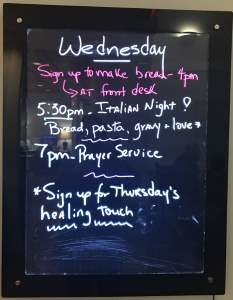 Wednesday
Sign up to make bread - 4pm
↳ AT front desk
5:30pm - ITALIAN NIGHT !
Bread, pasta, gravy + love*
7pm - Prayer Service
*Sign up for Thursday's
healing touch